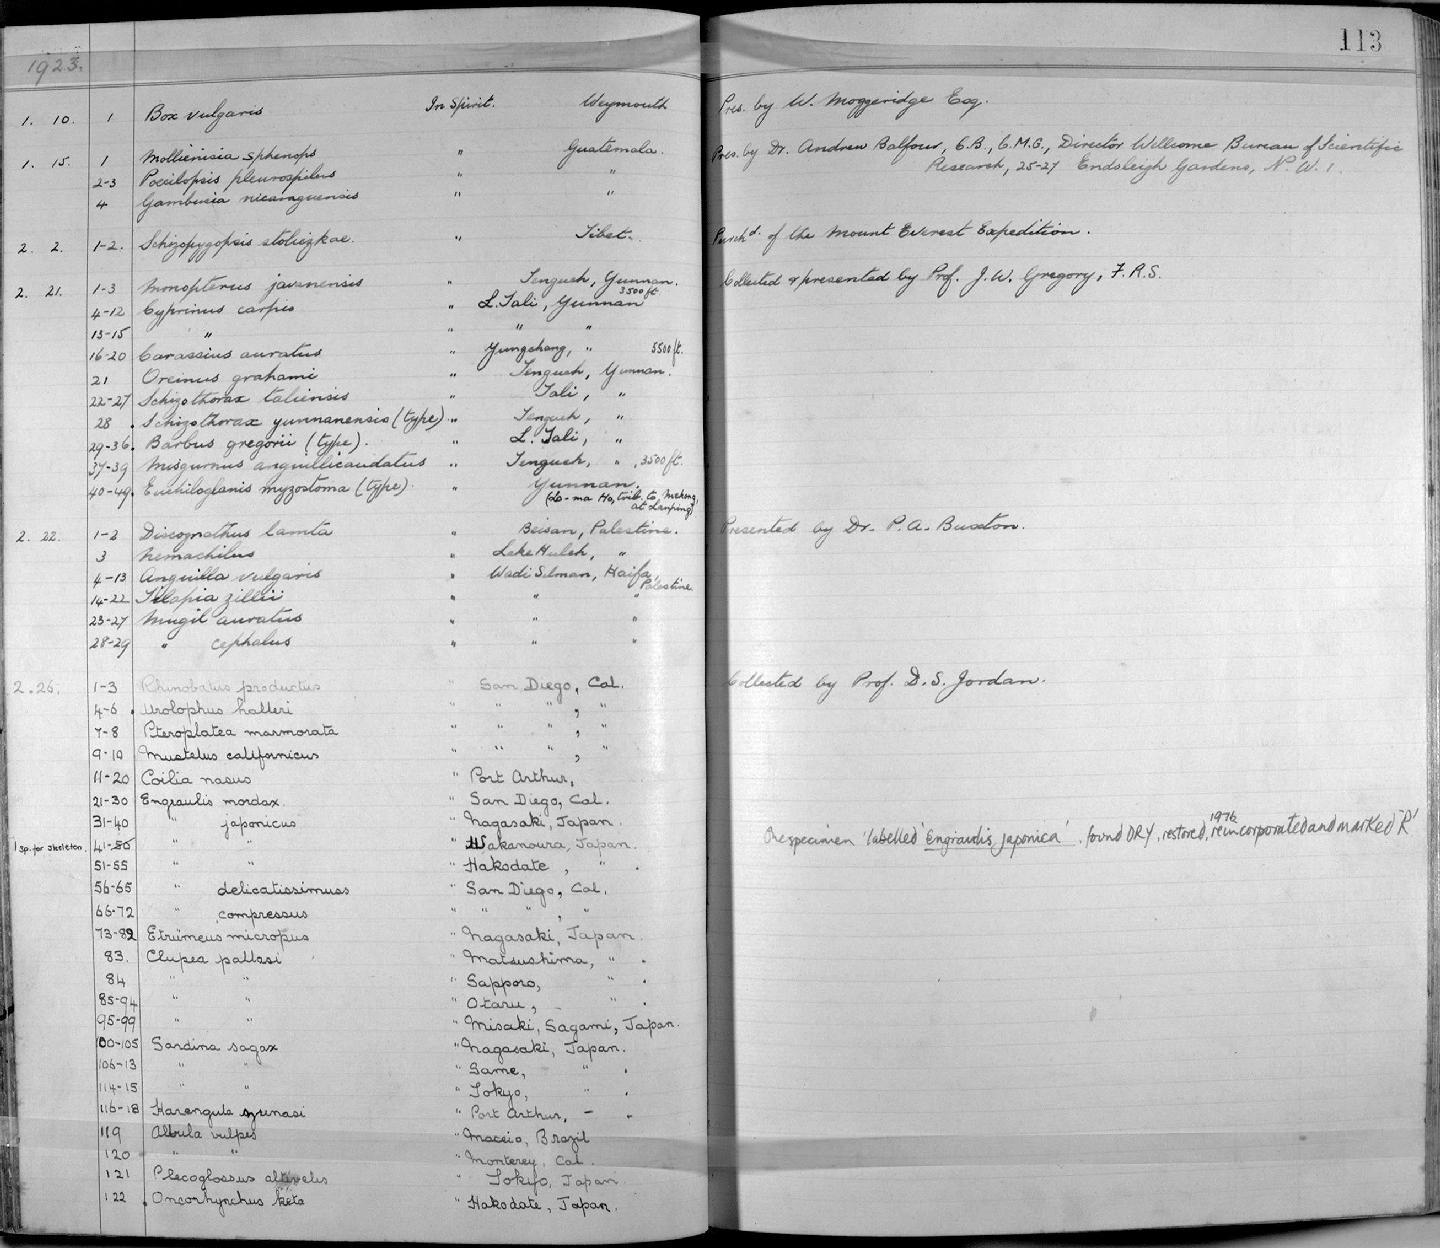 113
1923.
1. 10. 1 Box vulgaris In Spirit. Weymouth Pres. by W. Moggeridge Esq.
1. 15. 1 Mollienisia sphenops " Guatemala. Pres. by Dr. Andrew Balfour, C.B., C.M.G., Director Wellcome Bureau of Scientific
2-3 Poecilopsis pleurospilus " " Research, 25-27 Endsleigh Gardens, N.W.1.
4 Gambusia nicaraguensis " "
2. 2. 1-2. Schizopygopsis stoliczkae. " Tibet. Purchd. of the Mount Everest Expedition.
2. 21. 1-3 Monopterus javanensis " Tengueh, Yunnan. Collected & presented by Prof. J.W. Gregory, F.R.S.
3500 ft
4-12 Cyprinus carpio " L. Tali, Yunnan
13-15 " " " "
16-20 Carassius auratus " Yungchang, " 5500 ft.
21 Oreinus grahami " Tengueh, Yunnan.
22-27 Schizothorax taliensis " Tali, "
28 . Schizothorax yunnanensis (type) " Tengueh, "
29-36. Barbus gregorii (type). " L. Tali, "
37-39 Misgurnus anguillicaudatus " Tengueh, " , 3500 ft.
40-49. Euchiloglanis myzostoma (type) " Yunnan.
(Lo-ma Ho, trib. to Mekong,
at Lanping)
2. 22. 1-2 Discognathus lamta " Beisan, Palestine. Presented by Dr. P.A. Buxton.
3 Nemachilus " Lake Huleh, "
4-13 Anguilla vulgaris " Wadi Selman, Haifa,
Palestine
14-22 Tilapia zillii " " "
23-27 Mugil auratus " " "
28-29 " cephalus " " "
2. 26. 1-3 Rhinobatus productus " San Diego, Cal. Collected by Prof. D.S. Jordan.
4-6 . Urolophus halleri " " " , "
7-8 Pteroplatea marmorata " " " , "
9-10 Mustelus californicus " " " , "
11-20 Coilia nasus " Port Arthur,
21-30 Engraulis mordax. " San Diego, Cal.
31-40 " japonicus " Nagasaki, Japan.
1976
One specimen 'labelled 'Engraulis japonica' . found DRY, restored, reincorporated and marked 'R'
1 sp. for skeleton. 41-50 " " " Wakanoura, Japan.
51-55 " Hakodate , " .
56-65 " delicatissimus " San Diego, Cal.
66-72 " compressus " " " , "
73-82 Etrumeus micropus " Nagasaki, Japan.
83. Clupea pallasi " Matsushima, " .
84 " " " Sapporo, .
85-94 " " " Otaru, " .
95-99 " " " Misaki, Sagami, Japan.
100-105 Sardina sagax " Nagasaki, Japan.
106-13 " " " Same, " .
114-15 " " " Tokyo, " .
116-18 Harengula zunasi " Port Arthur, - .
119 Albula vulpes " Maceio, Brazil
120 " " " Monterey, Cal.
121 Plecoglossus altivelis " Tokyo, Japan
122 . Oncorhynchus keta " Hakodate, Japan.